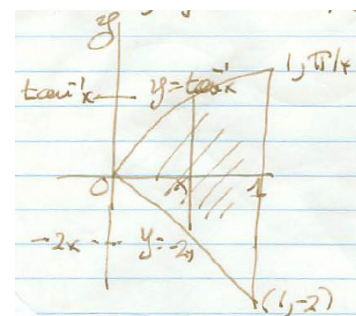 y
tan⁻¹x y=tan⁻¹x 1, π/4
0 x 1
-2x y=-2x
(1,-2)